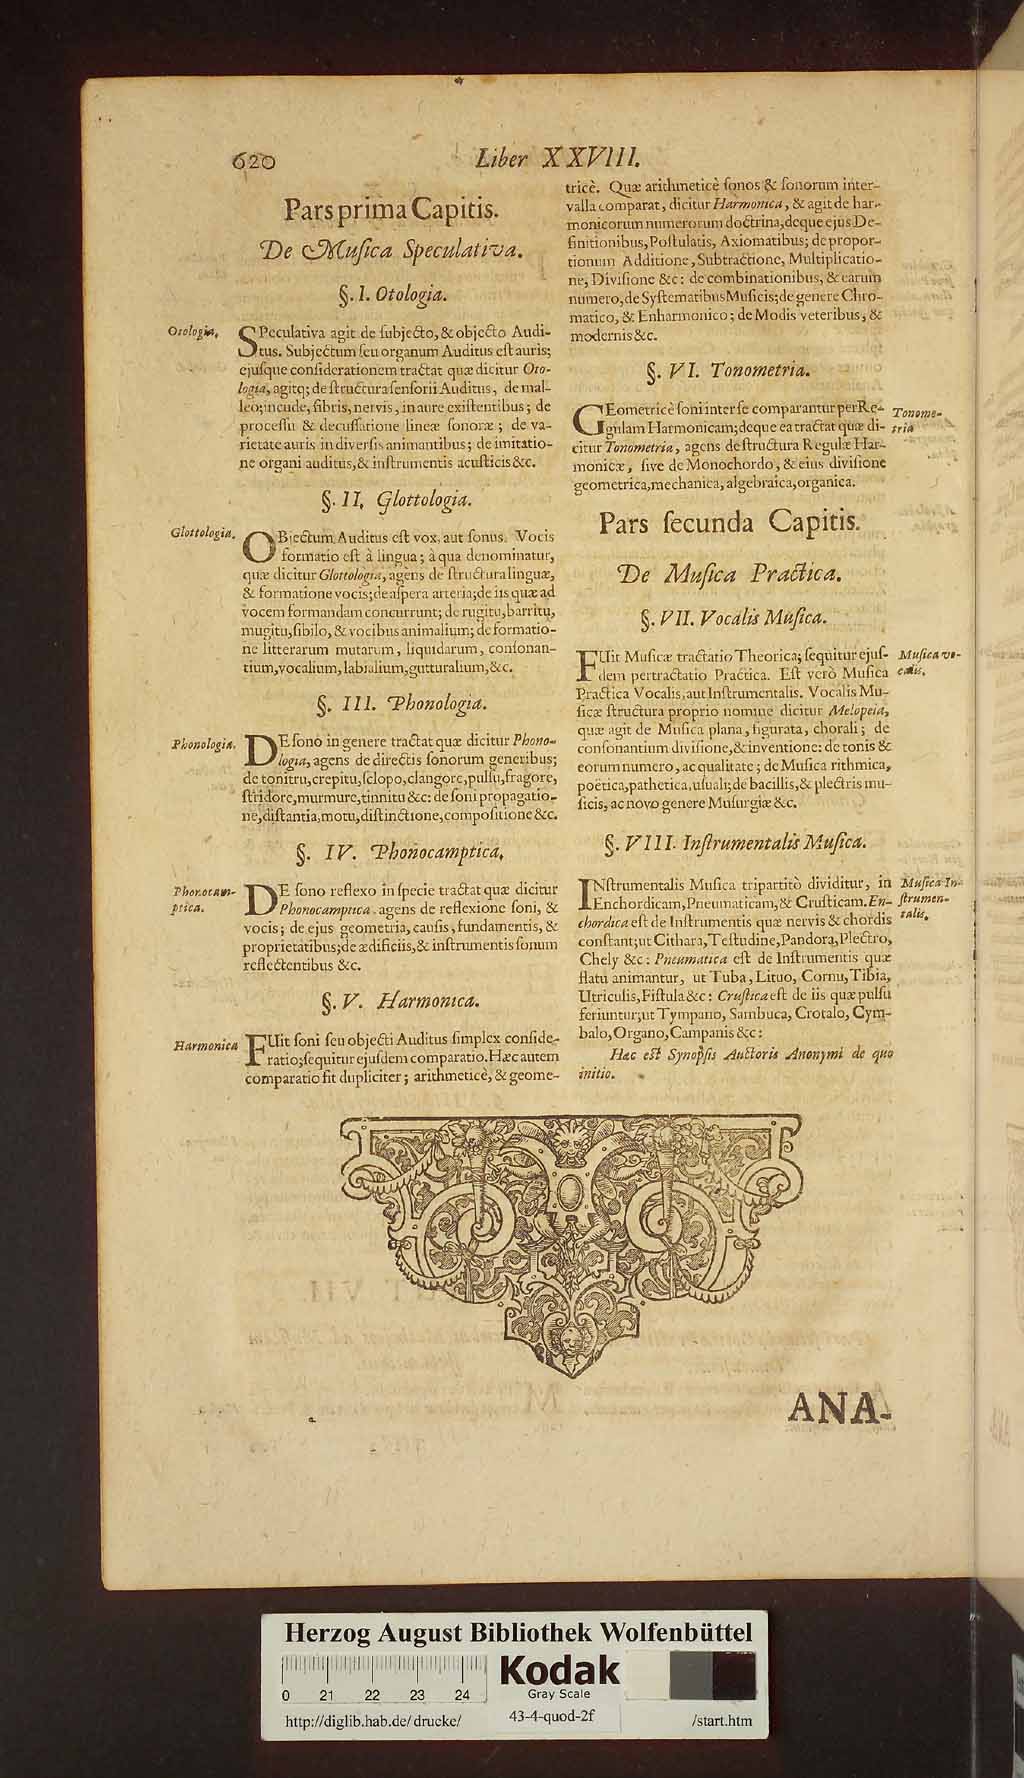 620
Liber XXVIII.
Pars prima Capitis.
De Muſica Speculativa.
§. I. Otologia.
Otologia,
SPeculativa agit de ſubjecto, & objecto Audi-
tus. Subjectum ſeu organum Auditus eſt auris;
ejuſque conſiderationem tractat quæ dicitur Oto-
logia, agitq; de ſtructura ſenſorii Auditus, de mal-
leo; incude, fibris, nervis, in aure exiſtentibus; de
proceſſu & decuſſatione lineæ ſonoræ; de va-
rietate auris in diverſis animantibus; de imitatio-
ne organi auditus, & inſtrumentis acuſticis &c.
§. II. Glottologia.
Glottologia.
OBjectum Auditus eſt vox, aut ſonus. Vocis
formatio eſt à lingua; à qua denominatur,
quæ dicitur Glottologia, agens de ſtructura linguæ,
& formatione vocis; de aſpera arteria; de iis quæ ad
vocem formandam concurrunt; de rugitu, barritu,
mugitu, ſibilo, & vocibus animalium; de formatio-
ne litterarum mutarum, liquidarum, conſonan-
tium, vocalium, labialium, gutturalium, &c.
§. III. Phonologia.
Phonologia.
DE ſono in genere tractat quæ dicitur Phono-
logia, agens de directis ſonorum generibus;
de tonitru, crepitu, ſclopo, clangore, pulſu, fragore,
ſtridore, murmure, tinnitu &c: de ſoni propagatio-
ne, diſtantia, motu, diſtinctione, compoſitione &c.
§. IV. Phonocamptica,
Phonocam-
ptica.
DE ſono reflexo in ſpecie tractat quæ dicitur
Phonocamptica, agens de reflexione ſoni, &
vocis; de ejus geometria, cauſis, fundamentis, &
proprietatibus; de ædificiis, & inſtrumentis ſonum
reflectentibus &c.
§. V. Harmonica.
Harmonica
FUit ſoni ſeu objecti Auditus ſimplex conſide-
ratio; ſequitur ejuſdem comparatio. Hæc autem
comparatio fit dupliciter; arithmeticè, & geome-
tricè. Quæ arithmeticè ſonos & ſonorum inter-
valla comparat, dicitur Harmonica, & agit de har-
monicorum numerorum doctrina, deque ejus De-
finitionibus, Poſtulatis, Axiomatibus; de propor-
tionum Additione, Subtractione, Multiplicatio-
ne, Diviſione &c: de combinationibus, & earum
numero, de Syſtematibus Muſicis; de genere Chro-
matico, & Enharmonico; de Modis veteribus, &
modernis &c.
§. VI. Tonometria.
Tonome-
tria
GEometricè ſoni inter ſe comparantur per Re-
gulam Harmonicam; deque ea tractat quæ di-
citur Tonometria, agens de ſtructura Regulæ Har-
monicæ, ſive de Monochordo, & eius diviſione
geometrica, mechanica, algebraica, organica.
Pars ſecunda Capitis.
De Muſica Practica.
§. VII. Vocalis Muſica.
Muſica vo-
calis.
FUit Muſicæ tractatio Theorica; ſequitur ejuſ-
dem pertractatio Practica. Eſt verò Muſica
Practica Vocalis, aut Inſtrumentalis. Vocalis Mu-
ſicæ ſtructura proprio nomine dicitur Melopeia,
quæ agit de Muſica plana, figurata, chorali; de
conſonantium diviſione, & inventione: de tonis &
eorum numero, ac qualitate; de Muſica rithmica,
poëtica, pathetica, uſuali; de bacillis, & plectris mu-
ſicis, ac novo genere Muſurgiæ &c.
§. VIII. Inſtrumentalis Muſica.
Muſica In-
ſtrumen-
talis.
INſtrumentalis Muſica tripartitò dividitur, in
Enchordicam, Pneumaticam, & Cruſticam. En-
chordica eſt de Inſtrumentis quæ nervis & chordis
conſtant; ut Cithara, Teſtudine, Pandora, Plectro,
Chely &c: Pneumatica eſt de Inſtrumentis quæ
flatu animantur, ut Tuba, Lituo, Cornu, Tibia,
Utriculis, Fiſtula &c: Cruſtica eſt de iis quæ pulſu
feriuntur; ut Tympano, Sambuca, Crotalo, Cym-
balo, Organo, Campanis &c:
Hæc eſt Synopſis Auctoris Anonymi de quo
initio.
ANA-
Herzog August Bibliothek Wolfenbüttel
Kodak
Gray Scale
0 21 22 23 24
http://diglib.hab.de/drucke/
43-4-quod-2f
/start.htm